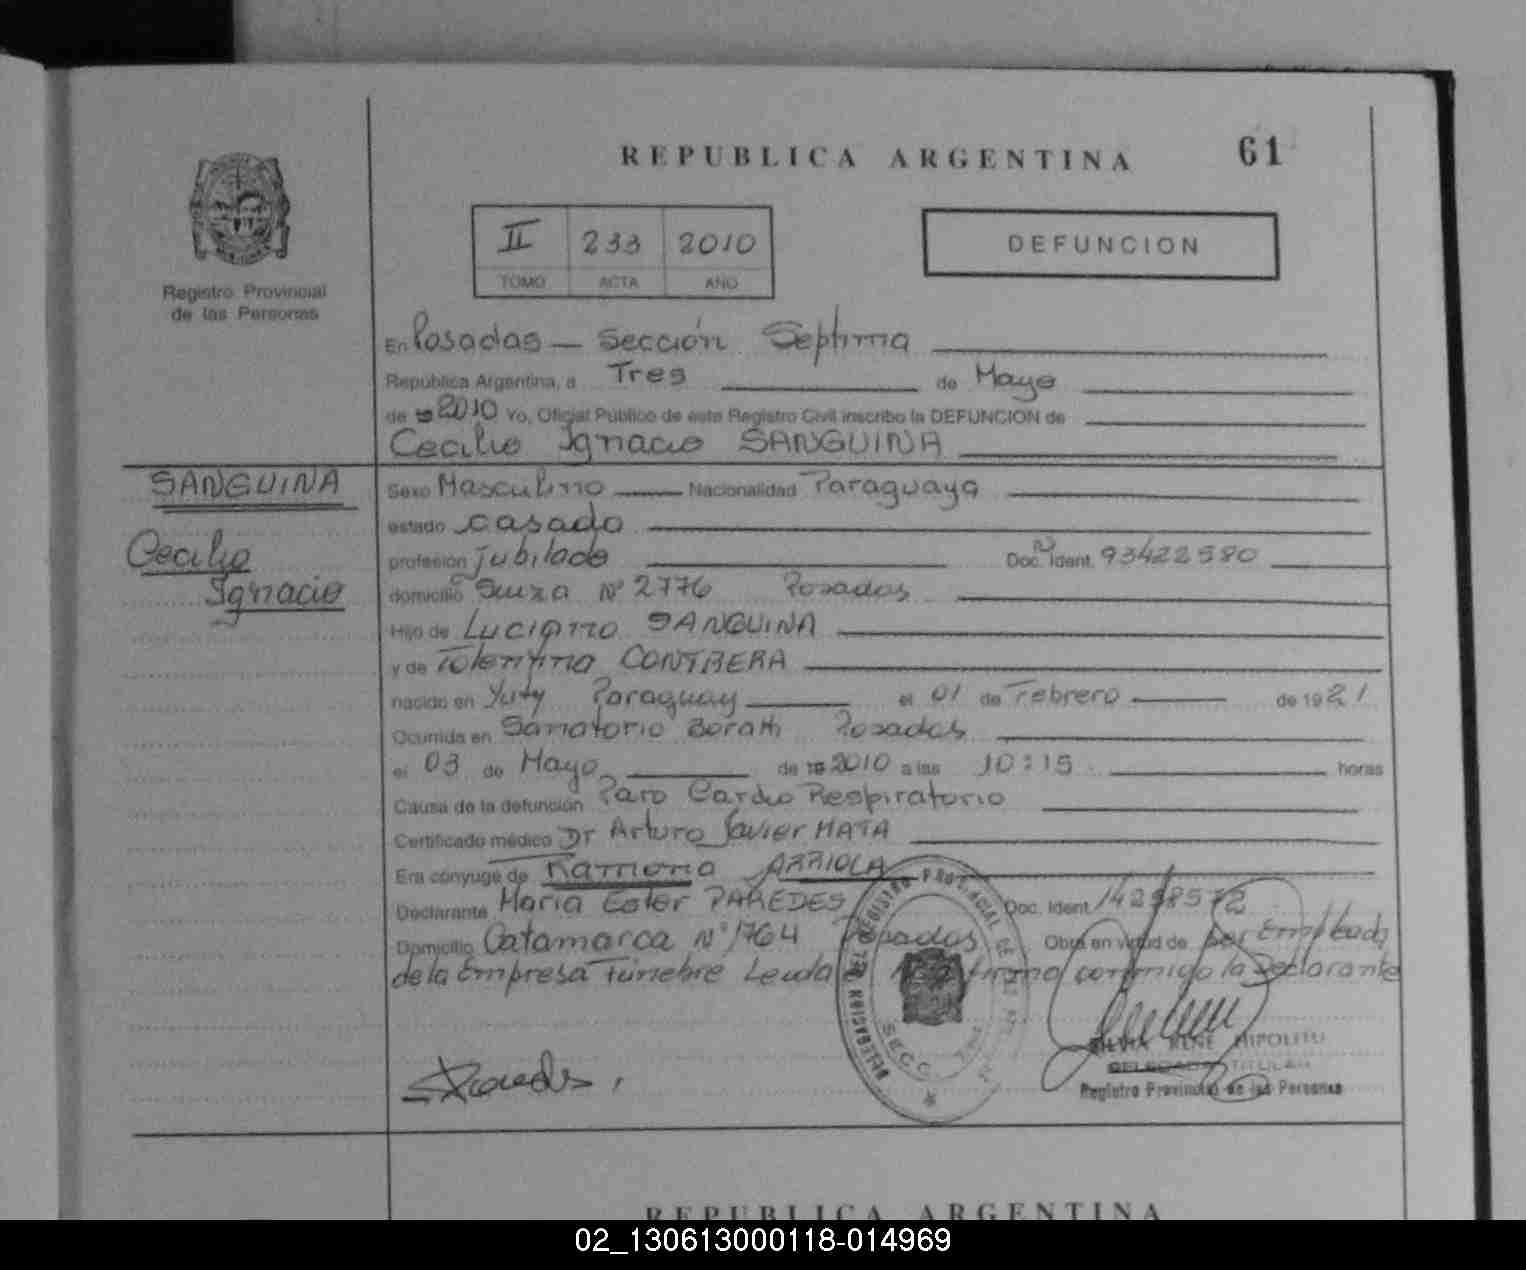 REPUBLICA ARGENTINA
61
II 233 2010
TOMO ACTA AÑO
DEFUNCION
Registro Provincial
de las Personas
En Posadas - Sección Septima
República Argentina, a Tres de Mayo
de 19 2010 Yo, Oficial Público de este Registro Civil inscribo la DEFUNCION de
Cecilio Ignacio SANGUINA
SANGUINA
Cecilio
Ignacio
Sexo Masculino Nacionalidad Paraguaya
estado casado
profesión jubilado Doc. Ident. 93422580
domicilio Suiza Nº 2776 Posadas
Hijo de Luciano SANGUINA
y de Tolentina CONTRERA
nacido en Yuty Paraguay el 01 de Febrero de 1921
Ocurrida en Sanatorio Boratti Posadas
el 03 de Mayo de 19 2010 a las 10:15 horas
Causa de la defunción Paro Cardio Respiratorio
Certificado médico Dr Arturo Javier MATA
Era cónyuge de Ramona ARRIOLA
Declarante María Ester PAREDES Doc. Ident. 14258572
Domicilio Catamarca Nº 1764 Posadas Obra en virtud de ser Empleada
de la Empresa Fúnebre firma conmigo la Declarante
SILVIA RENE HIPOLITO
DELEGADA TITULAR
Registro Provincial de las Personas
REPUBLICA ARGENTINA
02_130613000118-014969